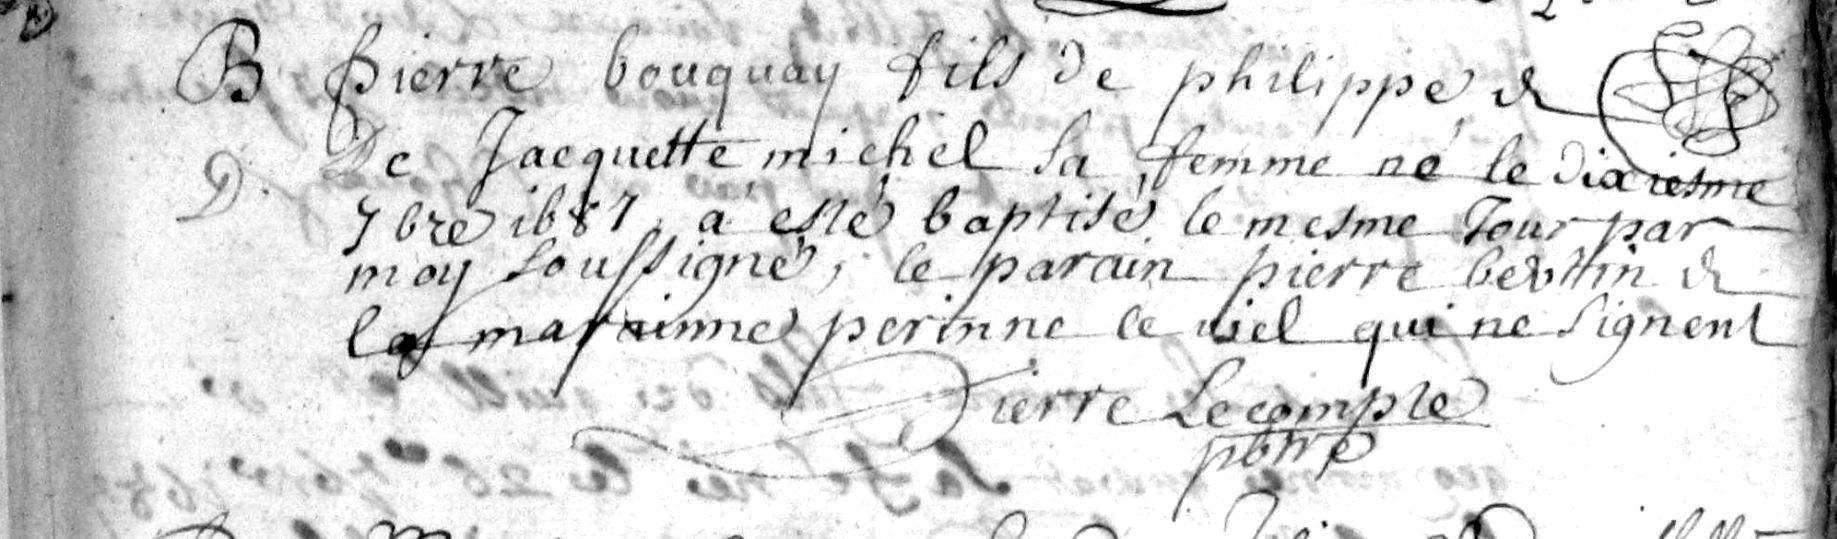 B Pierre bouquay fils de philippe &
D. De Jacquette michel sa femme né le dixiesme
7bre 1687, a esté baptisé le mesme Jour par
moy soussigné, le parain pierre &
la marainne perinne le viel qui ne signent
Pierre Lecompte
pbtre